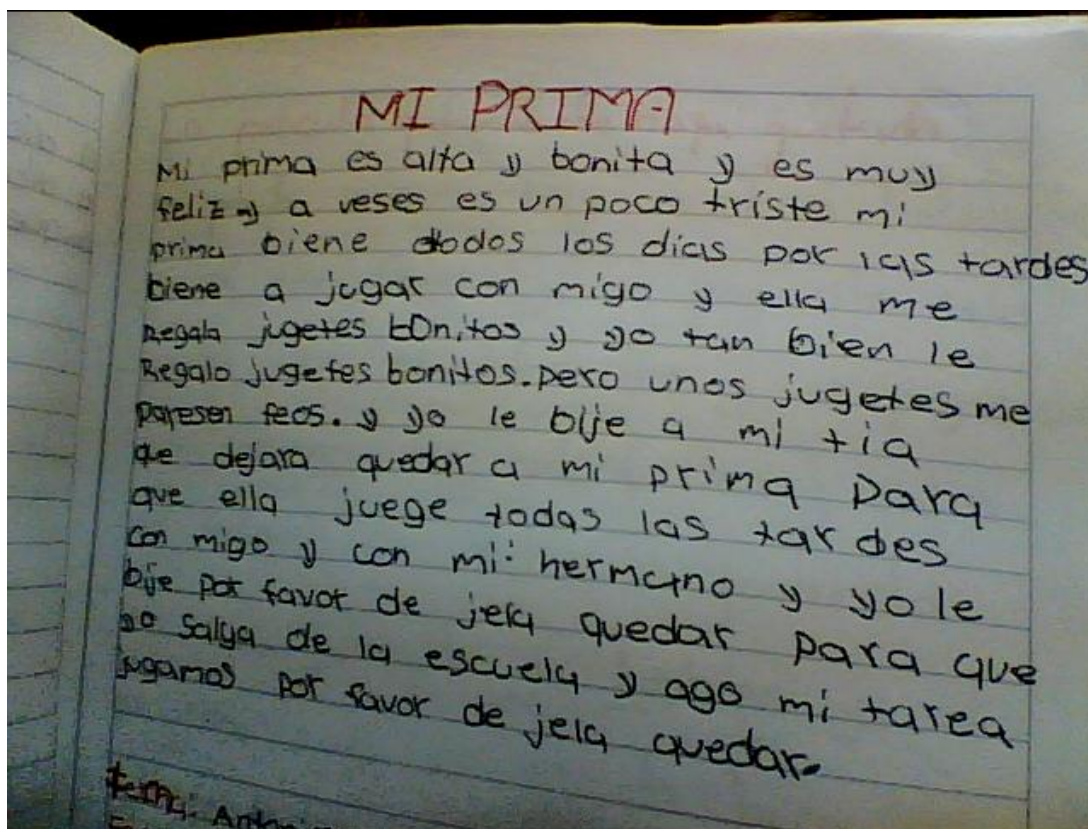 MI PRIMA
Mi prima es alta y bonita y es muy
feliz y a veses es un poco triste mi
prima biene dodos los dias por las tardes
biene a jugar con migo y ella me
Regala jugetes bonitos y yo tan bien le
Regalo jugetes bonitos. pero unos jugetes me
paresen feos. y yo le bije a mi tia
que dejara quedar a mi prima para
que ella juege todas las tardes
con migo y con mi hermano y yo le
bije por favor de jela quedar para que
yo salga de la escuela y ago mi tarea
jugamos por favor de jela quedar.